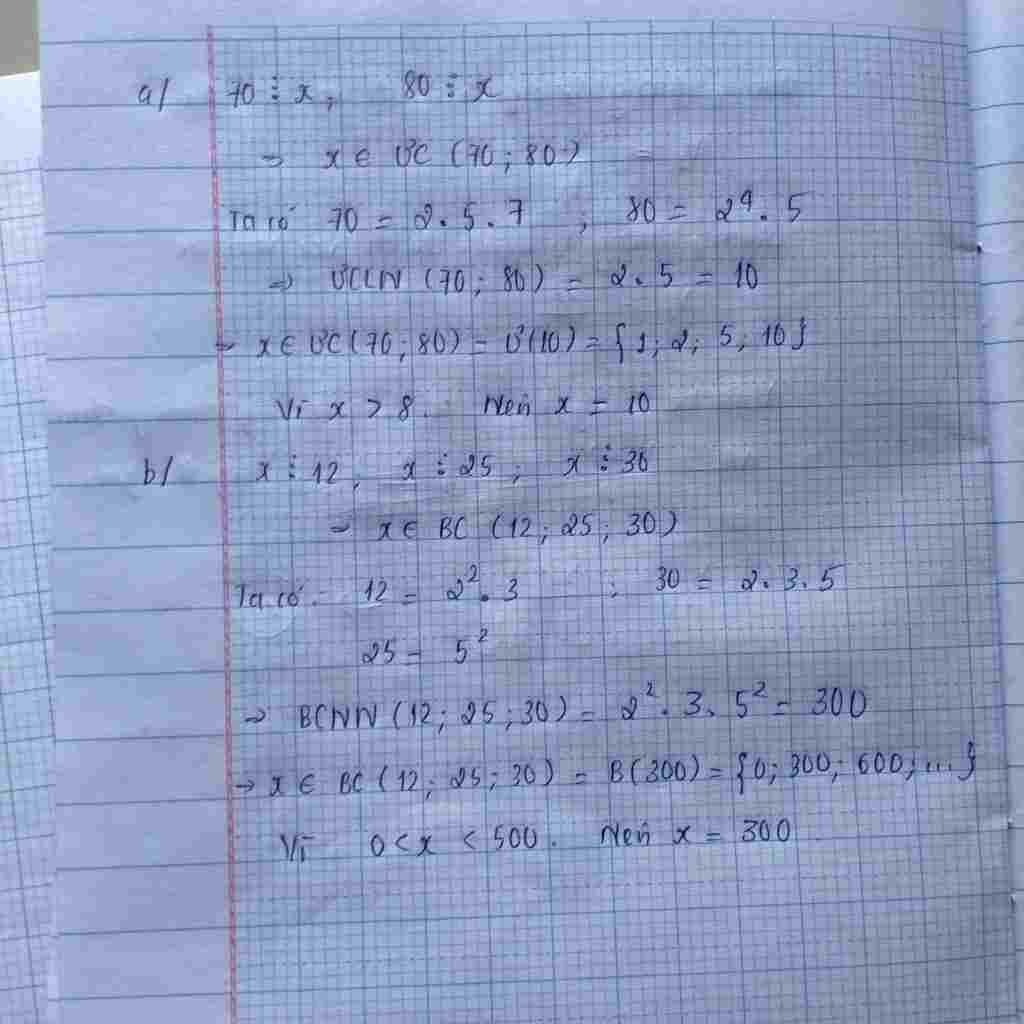 a/ 70 ⋮ x, 80 ⋮ x
→ x ∈ ƯC (70; 80)
Ta có 70 = 2.5.7 ; 80 = 2⁴.5
⇒ ƯCLN (70; 80) = 2.5 = 10
→ x ∈ ƯC(70; 80) = Ư(10) = {1; 2; 5; 10}
Vì x > 8. Nên x = 10
b/ x ⋮ 12, x ⋮ 25; x ⋮ 30
→ x ∈ BC (12; 25; 30)
Ta có: 12 = 2².3 ; 30 = 2.3.5
25 = 5²
→ BCNN (12; 25; 30) = 2².3.5² = 300
→ x ∈ BC (12; 25; 30) = B(300) = {0; 300; 600; ...}
Vì 0 < x < 500. Nên x = 300